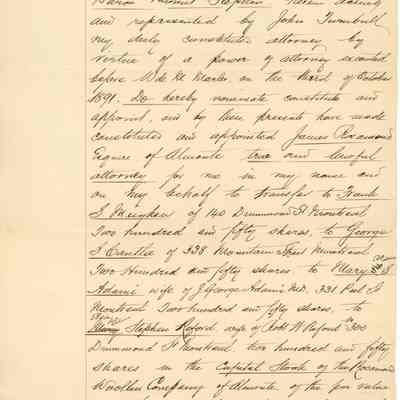 Baron Mount Stephen herein acting
and represented by John Turnbull
my duly constituted attorney by
virtue of a power of attorney executed
before W de M Marler, on the third of October
1891. Do hereby nominate constitute and
appoint, and by these presents have made
constituted and appointed James Rosamond
Esquire of Almonte true and lawful
attorney for me in my name and
on my behalf to transfer to Frank
S. Meighen of 140 Drummond St Montreal
Two hundred and fifty shares, to George
S Cantlie of 338 Mountain Street Montreal
Two hundred and fifty shares, to Mary
Adami wife of J. George Adami M.D. 331 Peel St
Montreal Two hundred and fifty shares, to
Stephen Reford, wife of Robt W Reford 300
Drummond St Montreal, two hundred and fifty
shares in the Capital Stock of the Rosamond
Woollen Company of Almonte of the par value